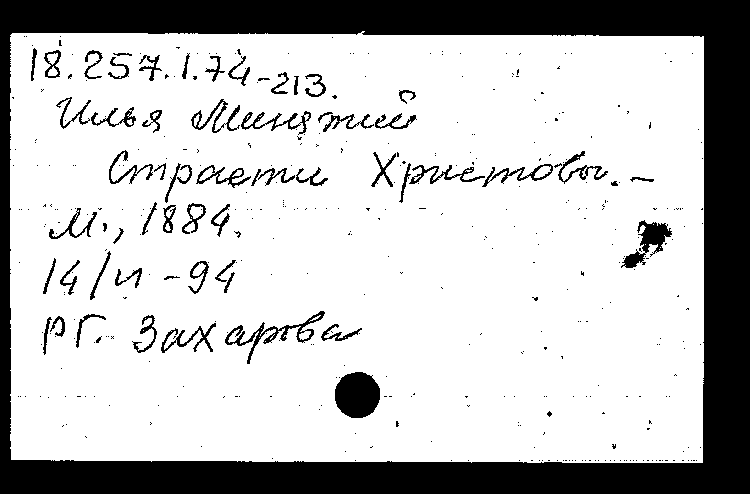 18.257.1.74-213.
Илья Минятий
Страсти Христовы. –
М., 1884.
14/VI - 94
РГ. Захарова